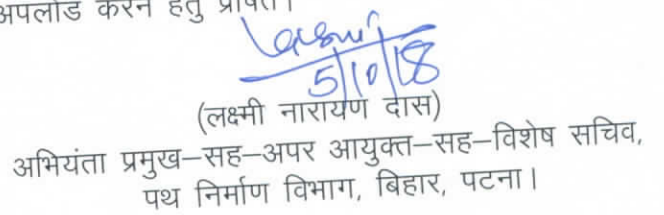 अपलोड करने हेतु प्रेषित।
Laxmi
5/10/18
(लक्ष्मी नारायण दास)
अभियंता प्रमुख–सह–अपर आयुक्त–सह–विशेष सचिव,
पथ निर्माण विभाग, बिहार, पटना।